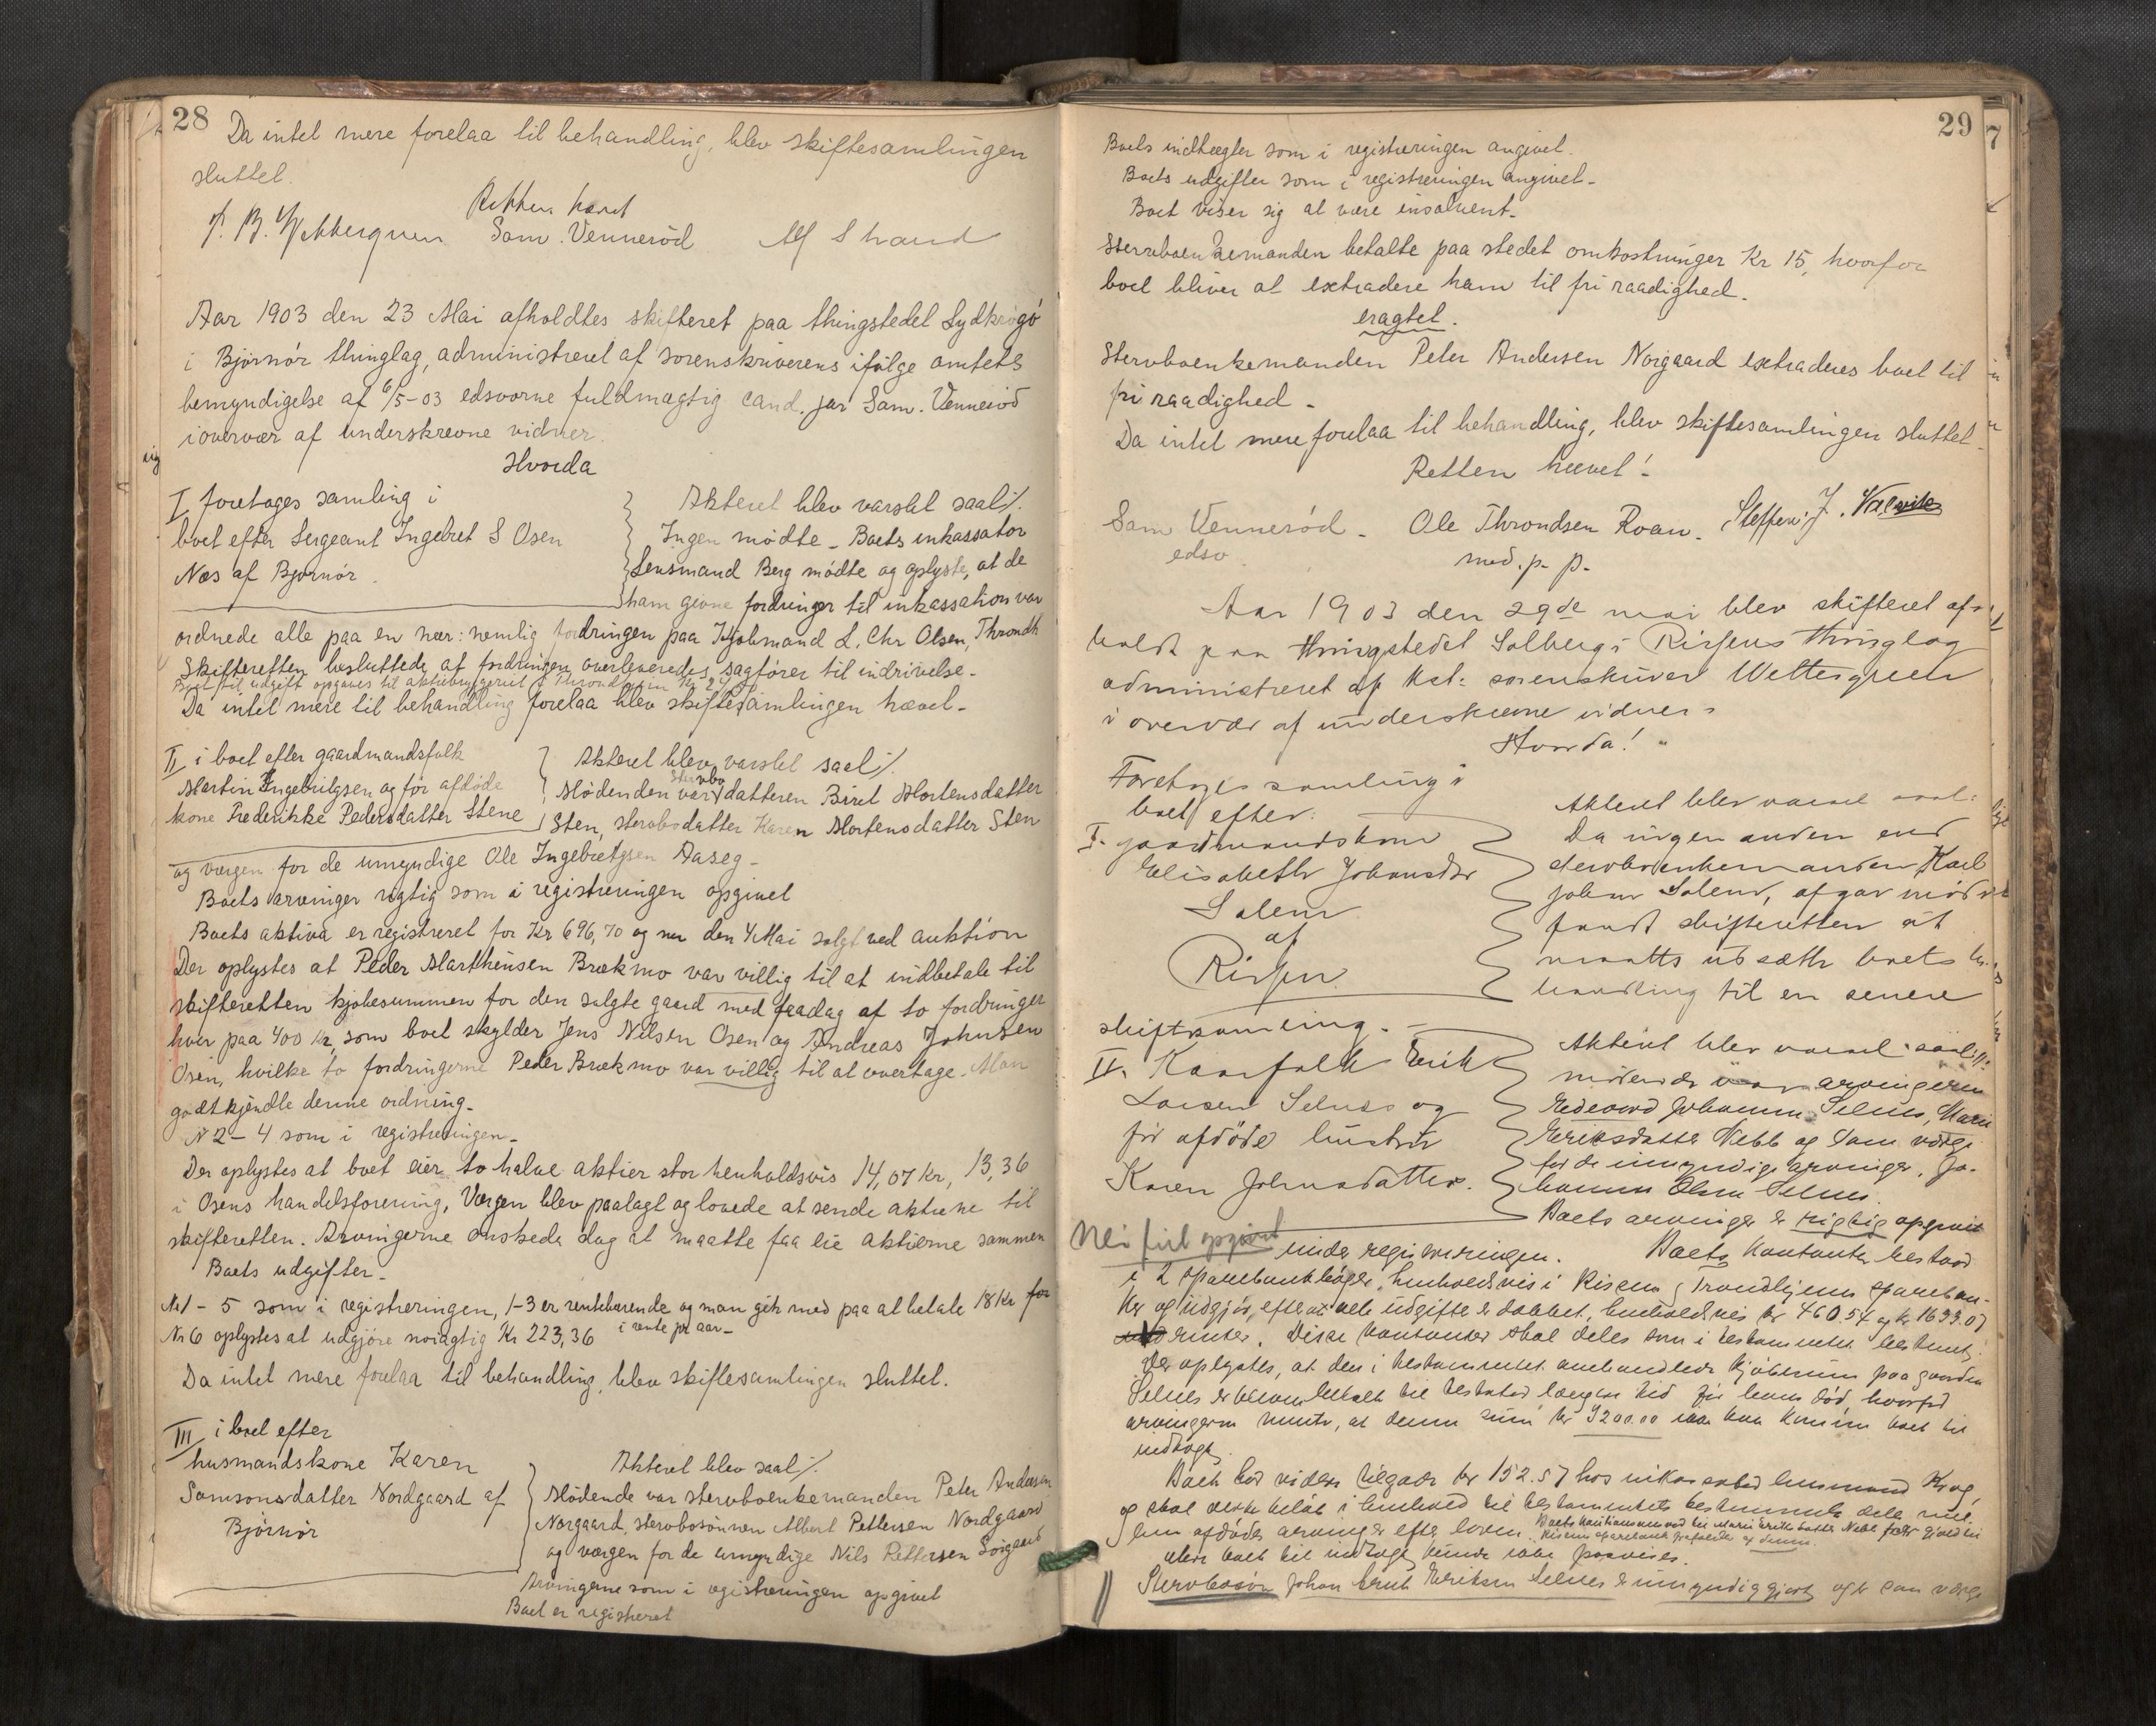 28
Da intet mere forelaa til behandling, blev skiftesamlingen
sluttet.
Retten hævet
Sam. Vennerød
Aar 1903 den 23 Mai afholdtes skifteret paa thingstedet Sydkrogø
i Bjørnør thinglag, administreret af sorenskriverens ifølge amtets
bemyndigelse af 6/5-03 edsvorne fuldmægtig cand. jur Sam. Vennerød
i overvær af underskrevne vidner.
Hvorda
I foretages samling i
boet efter Sergeant Ingebret S Osen
Næs af Bjørnør.
Akteret blev varslet saal%.
Ingen mødte - Boets inkassator
Lensmand Berg mødte og oplyste, at de
ham givne fordringer til inkassation var
ordnede alle paa en nær: nemlig fordringen paa Kjøbmand L. Chr Olsen, Throndh
Skifteretten besluttede at fordringen overleveredes sagfører til indrivelse.
Da intet mere til behandling forelaa blev skiftesamlingen hævet-
II i boet efter gaardmandsfolk
Martin Ingebrigtsen og før afdøde
kone Frederikke Pedersdatter Stene
Akteret blev varslet saal%.
Mødende var stervbodatteren Beret Mortensdatter
Sten, stervbodatter Karen Mortensdatter Sten
og værgen for de umyndige Ole Ingebretsen Aaseg-
Boets arvinger rigtig som i registreringen opgivet
Boets aktiva er registreret for Kr 696,70 og nu den 4 Mai solgt ved auktion
Der oplystes at Peder Marthinsen Brækmo var villig til at indbetale til
skifteretten kjøbesummen for den solgte gaard med fradag af to fordringer
hver paa 400 Kr, som boet skylder Jens Nilsen Osen og Andreas Johnsen
Osen, hvilke to fordringerne Peder Brækmo var villig til at overtage. Man
godtkjendte denne ordning-
N 2-4 som i registreringen-
Der oplystes at boet eier to halve aktier stor henholdsvis 14,07 Kr, 13,36
i Osens handelsforening, Værgen blev paalagt og lovede at sende aktierne til
skifteretten. Arvingerne ønskede dog at maatte faa eie aktierne sammen
Boets udgifter-
Nr 1-5 som i registreringen, 1-3 er rentebærende og man gik med paa at betale 18 Kr for
i rente pr aar-
Nr 6 oplystes at udgjøre nøiagtig Kr 223,36
Da intet mere forelaa til behandling, blev skiftesamlingen sluttet.
III i boet efter
husmandskone Karen
Samsonsdatter Nordgaard af
Bjørnør
Akteret blev saal%.
Mødende var stervboenkemanden Peter Andersen
Norgaard, stervbosønnen Albert Pettersen Nordgaard
og værgen for de umyndige Nils Pettersen Sørgaard
Arvingerne som i registreringen opgivet
Boet er registreret
29
Boets indtægter som i registreringen angivet.
Boets udgifter som i registreringen angivet-
Boet viser sig at være insolvent-
Stervboenkemanden betalte paa stedet omkostninger Kr 15, hvorfor
boet bliver at extradere ham til fri raadighed.
eragtet.
Stervboenkemanden Peter Andersen Norgaard extraderes boet til
fri raadighed-
Da intet mere forelaa til behandling, blev skiftesamlingen sluttet-
Retten hævet!
Sam Vennerød-
edsv.
Ole Throndsen Roan-
med. p. p-
Steffen J.
Aar 1903 den 29de mai blev skifteret af-
holdt paa thingstedet Solberg i Rissens thinglag
administreret af kst: sorenskriver Wettergreen
i overvær af underskrevne vidner
Hvorda!
Foretages samling i
boet efter:
I. gaardmandskone
Elisabeth Johansdtr
Salem
af
Rissen
Akteret blev varslet saal:
Da ingen anden end
stervboenkemanden Karl
Johan Salem, afgav møde
fandt skifteretten at
maatte udsætte boets be-
handling til en senere
skiftesamling.
II. Kaarfolk Erik
Larsen Selnes og
før afdøde hustru
Karen Johnsdatter.
Akteret blev varslet saal%.
mødende var arvingerne
Edevard Johannes Selnes, Marie
Eriksdatter Nebb og som værge
for de umyndige arvinger, Jo-
hannes Olsen Selnes.
Boets arvinger er rigtig opgivet
Nei feil opgivet
under registreringen. Boets kontanter bestaar
i 2 sparebankbøger, henholdsvis i Rissens & Trondhjems spareban-
ker og udgjør, efter at dels udgifter er dækket, henholdsvis kr 460.54 og kr 1699.07
renter. Disse kontanter skal deles som i testamentet bestemt.
Der oplystes, at den i testamentet omhandlede kjøbesum paa gaarden
Selnes er bleven betalt til testator længere tid før hans død, hvorfor
arvingerne mente, at denne sum kr 3200.00 ikke kan komme boet til
indtægt.
Boet har videre tilgode kr 152.57 hos inkassator lensmand Krog,
og skal dette beløb i henhold til testamentets bestemmelse deles mel-
lem afdødes arvinger efter loven.
videre boet til indtægt kunde ikke paavises.
Stervbosøn Johan Ernst Eriksen Selnes er umyndiggjort og er som værge